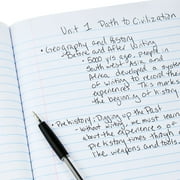 Unit 1 Path to Civilization
• Geography and History
Before and After Writing
• 5000 yrs ago, people in
South west Asia, and
Africa developed a system
of writing to record their
experiences. This marks
the beginning of history
• Prehistory: Digging up the Past
- without writing, we must learn
about the experiences of
Prehistory times through
like weapons and tools,